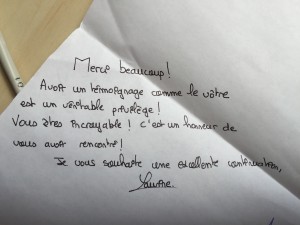 Merci beaucoup !
Avoir un témoignage comme le vôtre
est un véritable privilège !
Vous êtes incroyable ! c'est un honneur de
vous avoir rencontré !
Je vous souhaite une excellente continuation,